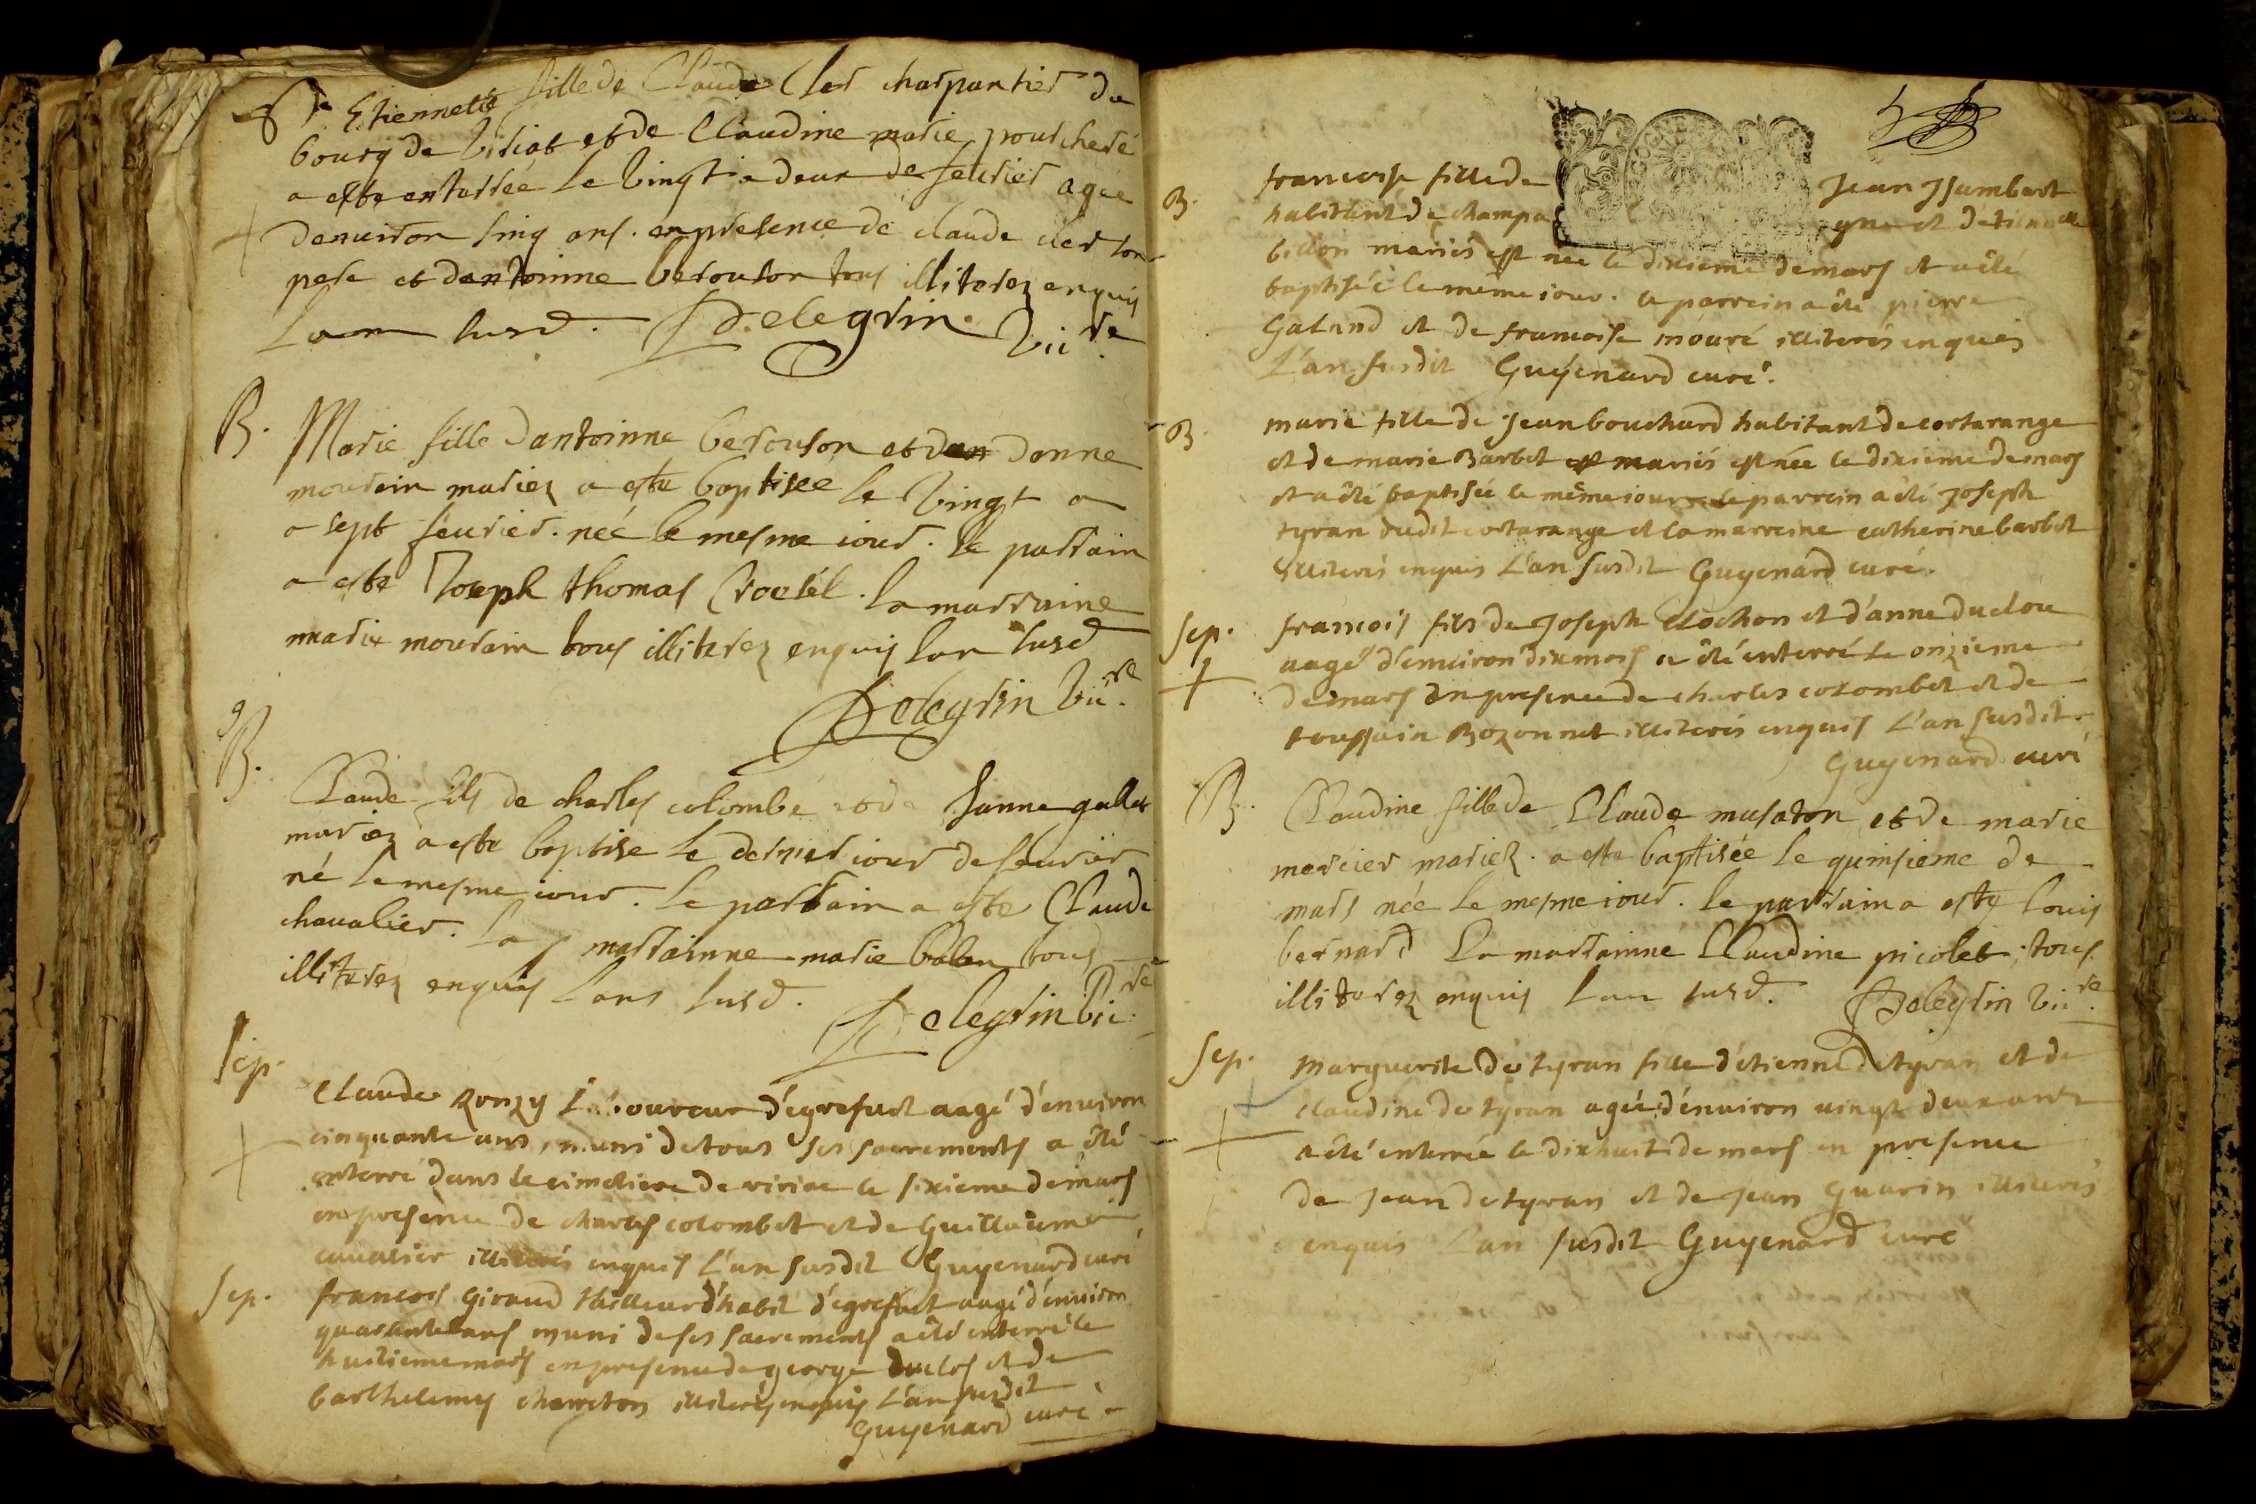 Etiennette fille de Claude Cler charpantier du
bourg de Viriat et de Claudine marie pourcheré
a este enterrée le vingt a deux de feurier agée
denuiron sinq ans. en presence de claude cler son
pere et dantoinne berouson tous illiterez enquis
Lan susd. Pelegrin Vic.re
B. Marie fille dantoinne berouson et donne
mourain mariez a este baptisée le vingt a
a sept feurier. née le mesme iour. le parrain
a este Joseph thomas . la marraine
marie mourain tous illiterez enquis lan susd
Pelegrin Vic.re
B.
Claude fils de charles colombé et de Janne gallet
mariez a este baptise le dernier iour de feurier
né le mesme iour. le parrain a este Claude
cheualier. la marrainne marie tous
illiterez enquis lan susd. Pelegrin Vic.re
Sep.
Claude Laboureur d'égrefuel aagé d'enuiron
cinquante ans, muni de tous ses sacrements a été
enterré dans le cimetiere de viriac le sixieme de mars
en presence de charles colombet et de Guillaume
cavalier illiterés enquis L'an susdit Guyenard curé
Sep. francois Giraud thailleur d'habit d'égrefuel aagé d'enuiron
quarante ans muni de ses sacrements a été enterré le
huitieme mars en presence de george duclos et de
barthelemy illiterés enquis L'an susdit
Guyenard curé
B. francoise fille de Jean Jsambert
habitant de champagne et detiennette
billon mariés est née le dixieme de mars et a été
baptisée le même iour. le parrein a été pierre
Galand et de francoise mouré illiterés enquis
L'an susdit Guyenard curé.
B. marie fille de Jean bouchard habitant de cortarange
et de marie Barbet est mariés est née le dixieme de mars
et a été baptisée le même iour le parrein a été Joseph
tyran dudit cortarange et la marreine catherine barbet
illiterés enquis L'an susdit Guyenard curé.
Sep. francois fils de Joseph Clochon et d'anne duclou
aagé d'enuiron dix mois a été enterré le onzieme
de mars en presence de charles colombet et de
toussain Bozonnet illiterés enquis L'an susdit
Guyenard curé
B. Claudine fille de Claude musaton et de marie
mercier mariez. a este baptisée le quinsieme de
mars née le mesme iour. le parrain a este louis
bernard La marrainne Claudine picolet. tous
illiterez enquis lan susd. Pelegrin Vic.re
Sep. Marguerite de tyran fille d'étienne detyran et de
claudine de tyran agée d'enuiron vingt deux ans
a été enterrée le dixhuit de mars en presence
de Jean detyran et de Jean Guarin illiterés
enquis L'an susdit Guyenard curé